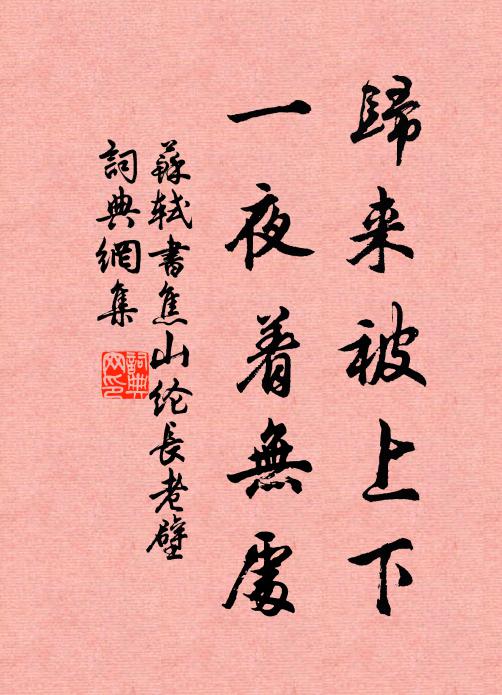 歸来被上下
一夜着無處
蘇軾書焦山纶長老壁
詞典網集
詞典
网印